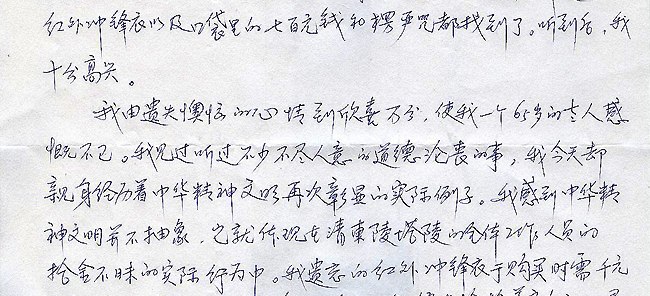 红外冲锋衣以及口袋里的七百元钱和楞严咒都找到了。听到后，我
十分高兴。
我由遗失懊恼的心情到欣喜万分，使我一个65岁的老人感
慨不已。我见过听过不少不尽人意的道德沦丧的事，我今天却
亲身经历着中华精神文明再次彰显的实际例子。我感到中华精
神文明并不抽象，它就体现在清東陵塔陵的全体工作人员的
拾金不昧的实际行为中。我遗忘的红外冲锋衣于购买时需千元